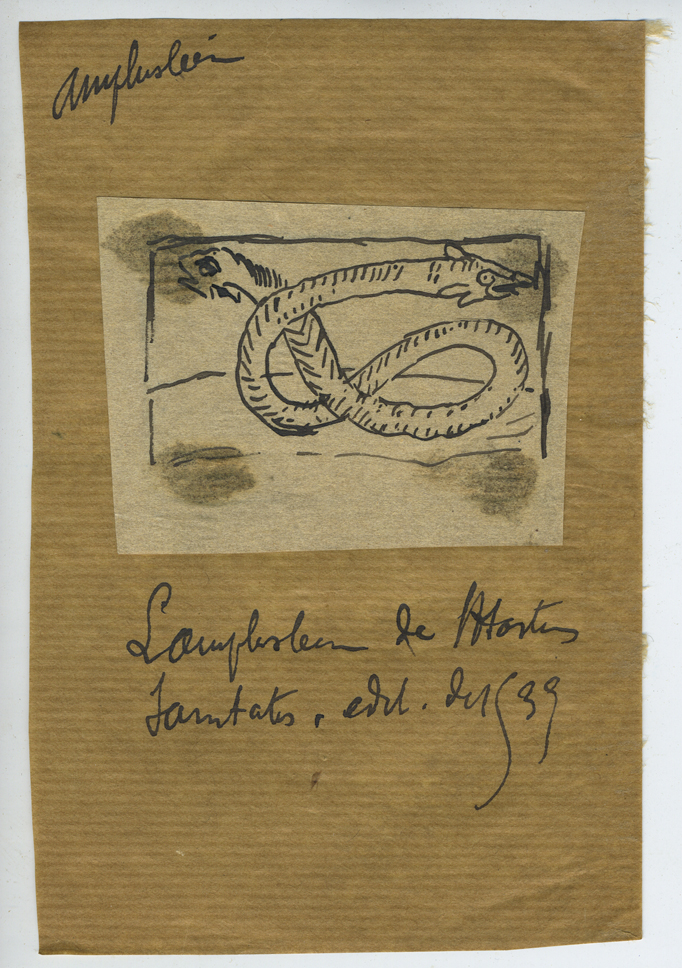 Amphisbein
L'amphisbein de l'Hortus
Sanitatis, edit. de 1539